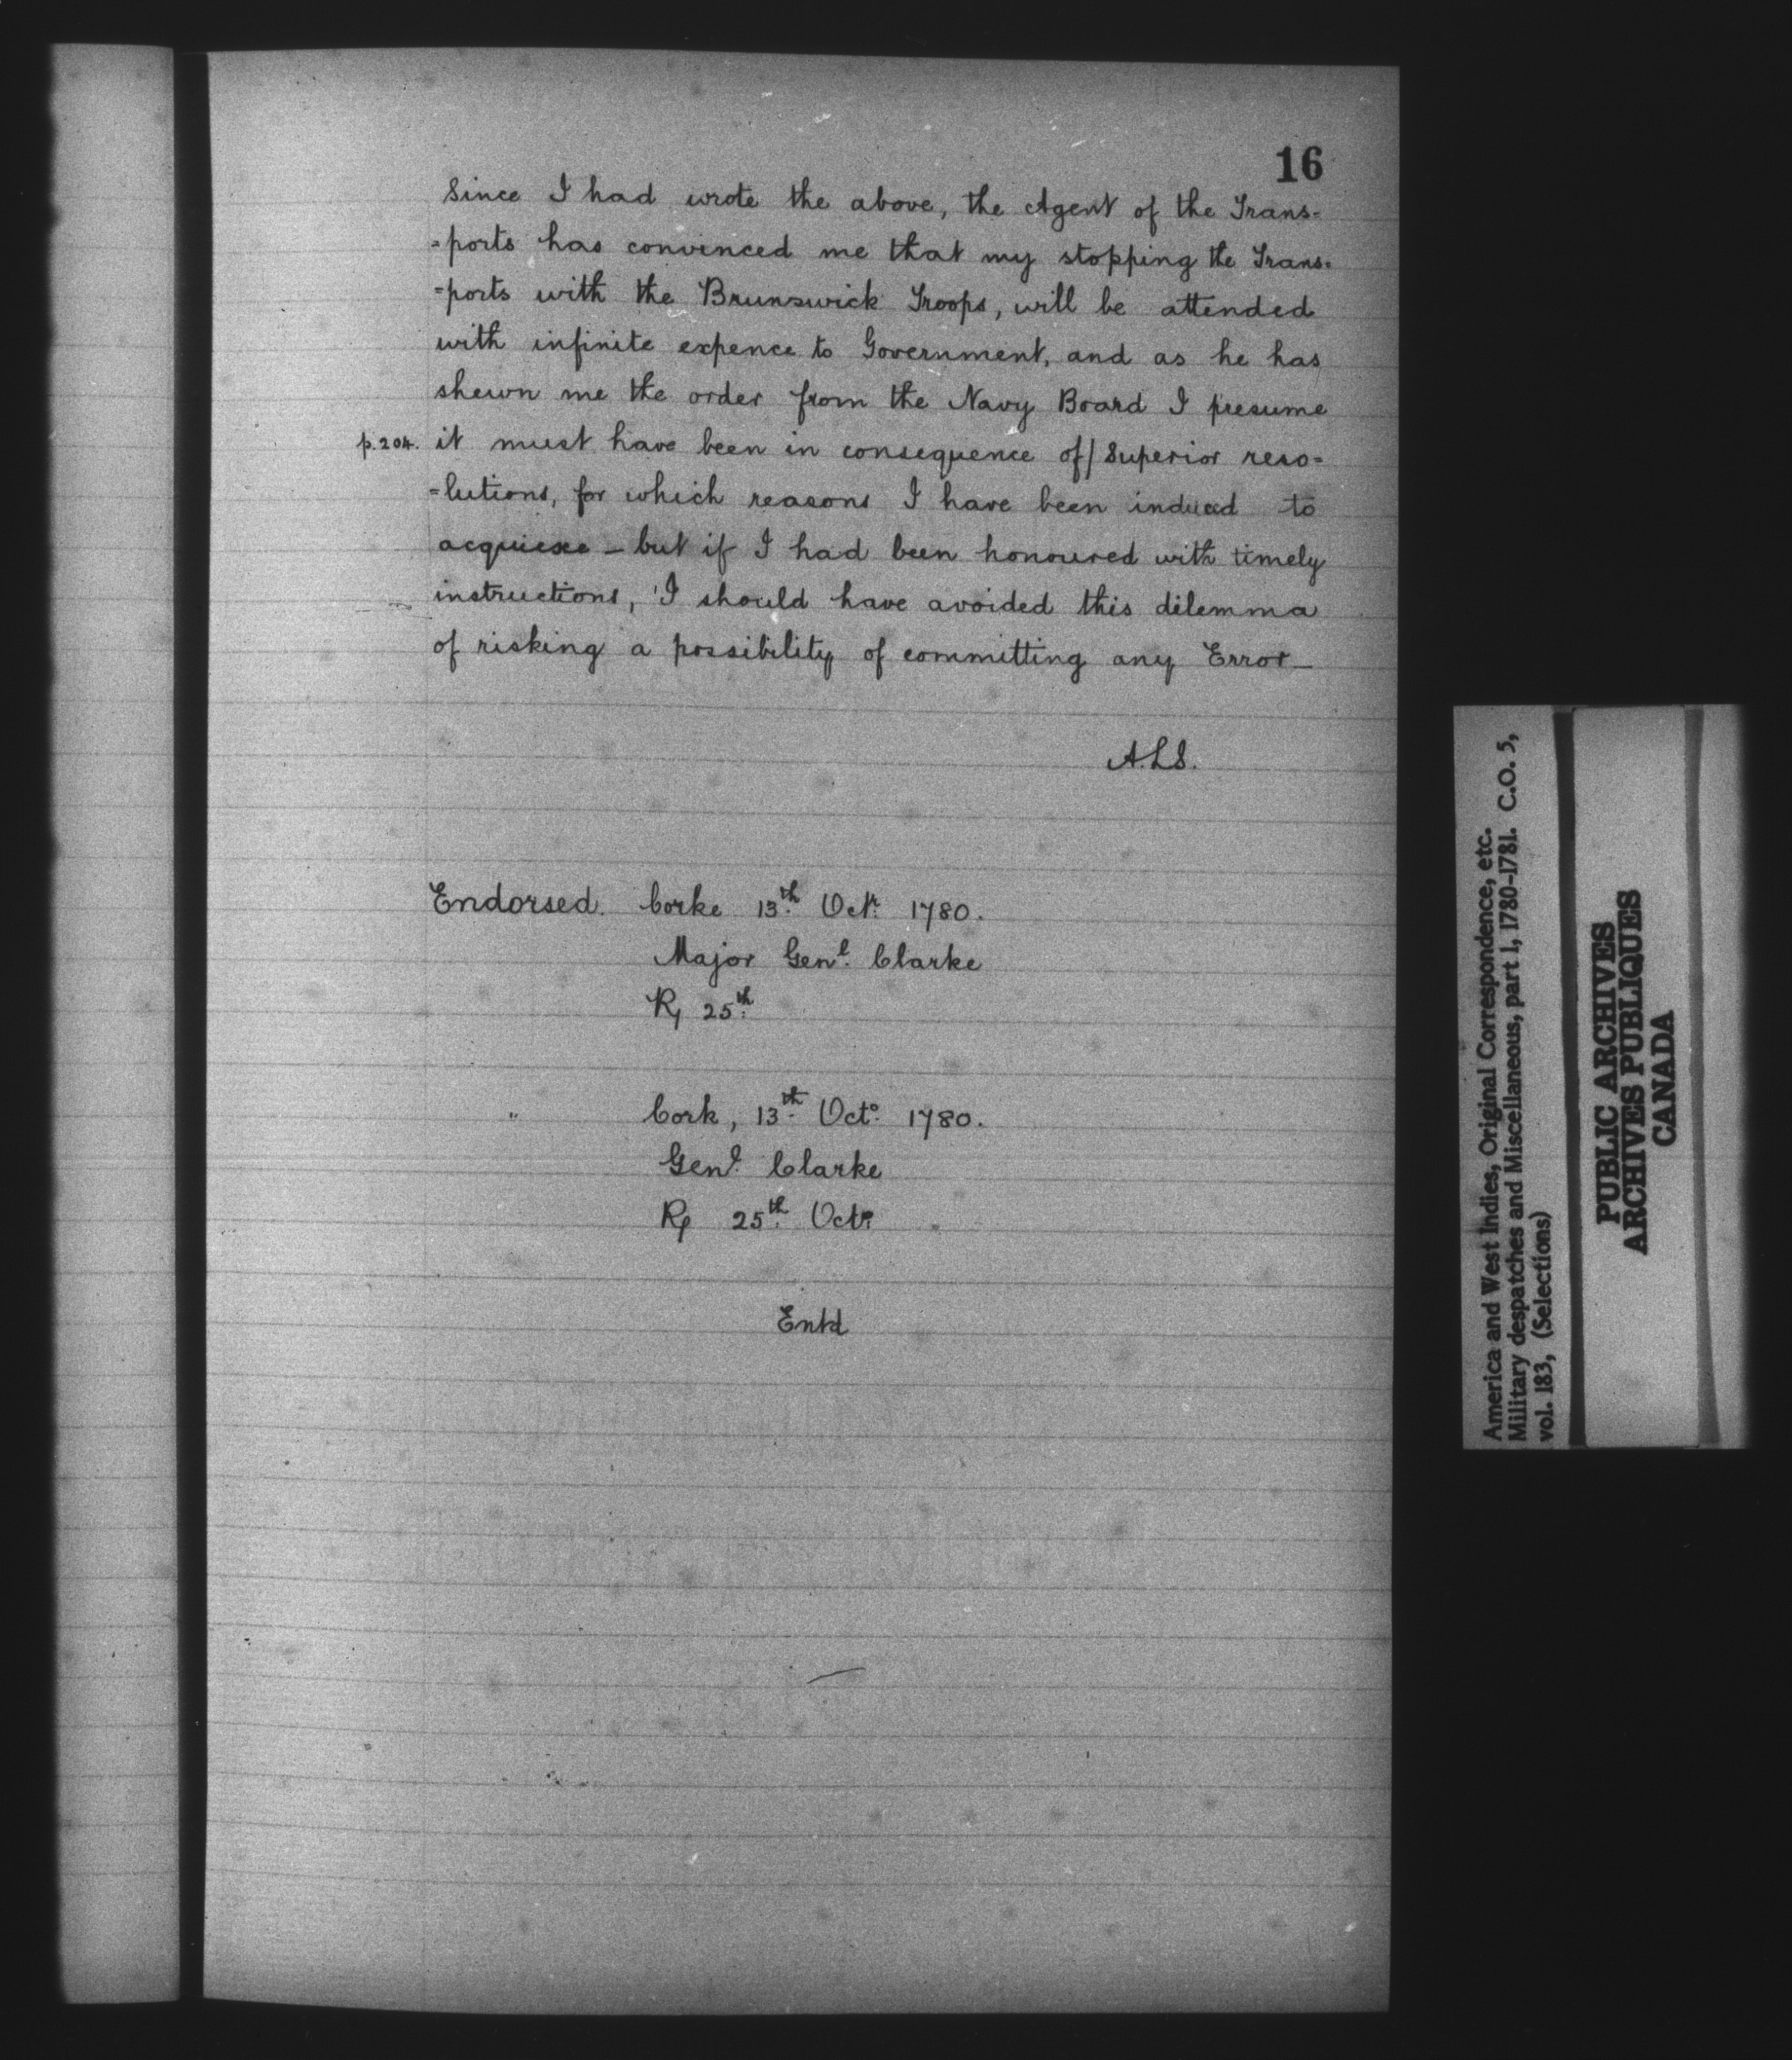 16
Since I had wrote the above, the Agent of the Trans=
=ports has convinced me that my stopping the Trans=
=ports with the Brunswick Troops, will be attended
with infinite expence to Government, and as he has
shewn me the order from the Navy Board I presume
p.204. it must have been in consequence of/ Superior reso=
=lutions, for which reasons I have been induced to
acquiesce – but if I had been honoured with timely
instructions, I should have avoided this dilemma
of risking a possibility of committing any Error –
A.L.S.
Endorsed. Corke 13th Octr. 1780.
Major Genl. Clarke
R, 25th.
" Cork, 13th. Octo. 1780.
Genl. Clarke
R, 25th. Octr.
Entd
America and West Indies, Original Correspondence, etc.
Military despatches and Miscellaneous, part 1, 1780-1781. C.O. 5,
vol. 183, (Selections)
PUBLIC ARCHIVES
ARCHIVES PUBLIQUES
CANADA